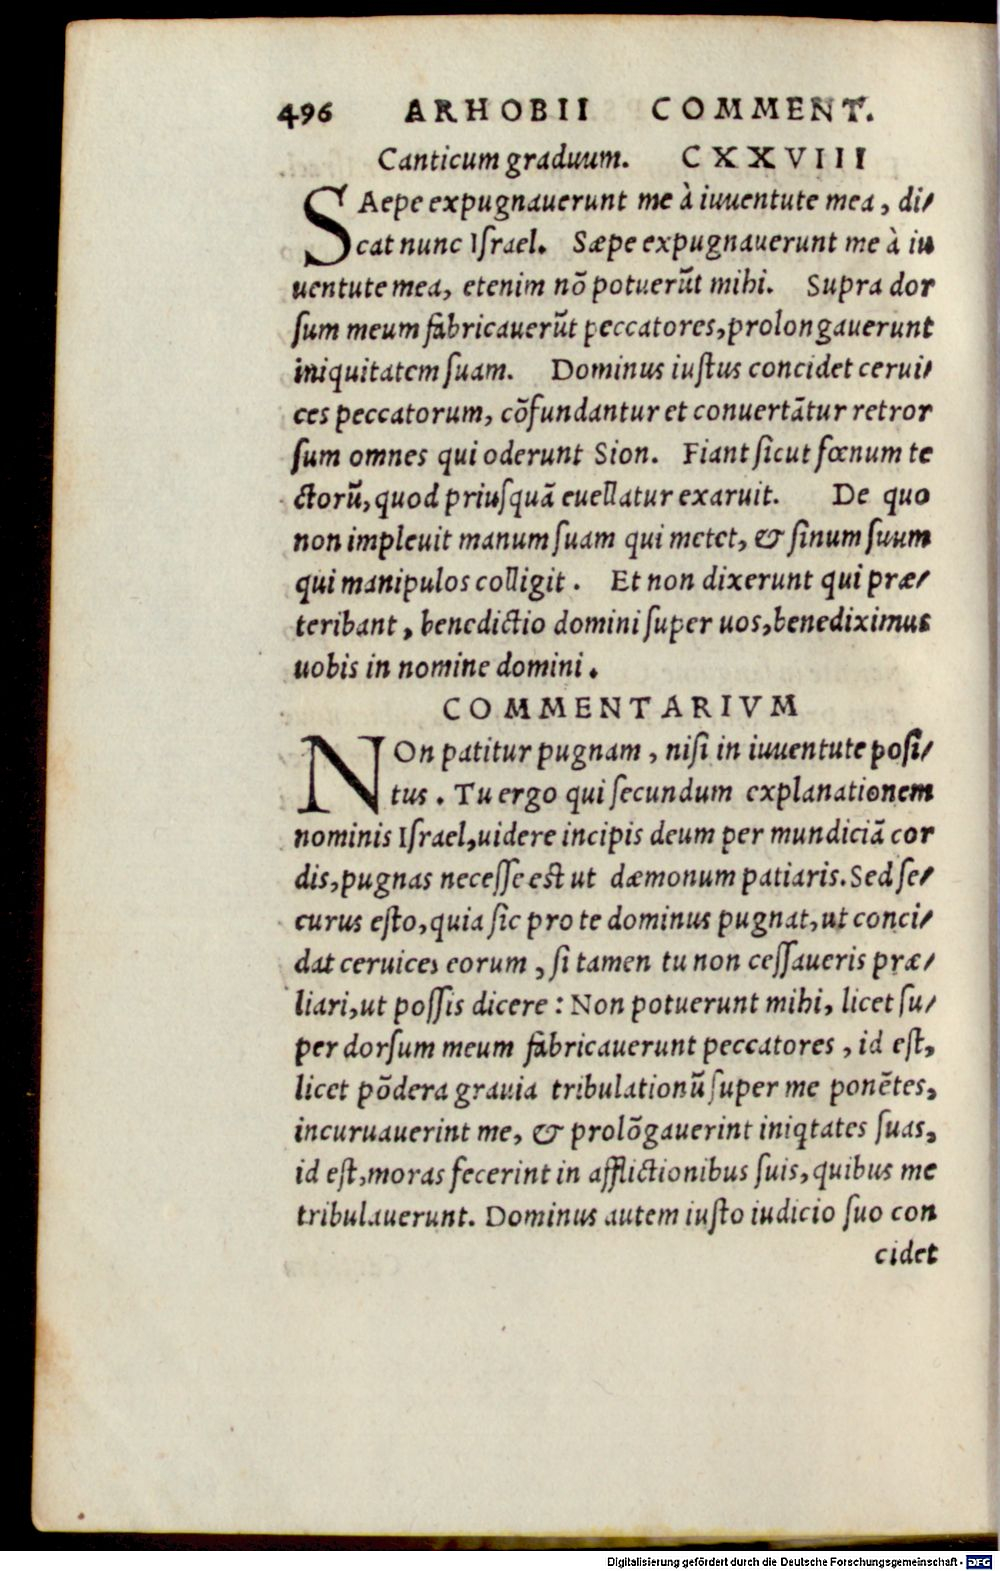 496 ARHOBII COMMENT.
Canticum graduum. CXXVIII
SAepe expugnauerunt me à iuuentute mea, di/
cat nunc Iſrael. Sæpe expugnauerunt me à iu
uentute mea, etenim nõ potuerũt mihi. Supra dor
ſum meum fabricauerũt peccatores,prolongauerunt
iniquitatem ſuam. Dominus iuſtus concidet cerui/
ces peccatorum, cõfundantur et conuertãtur retror
ſum omnes qui oderunt Sion. Fiant ſicut fœnum te
ctorũ,quod priuſquã euellatur exaruit. De quo
non impleuit manum ſuam qui metet, & ſinum ſuum
qui manipulos colligit. Et non dixerunt qui præ/
teribant, benedictio domini ſuper uos,benediximus
uobis in nomine domini.
COMMENTARIVM
NOn patitur pugnam, niſi in iuuentute poſi/
tus. Tu ergo qui ſecundum explanationem
nominis Iſrael,uidere incipis deum per mundiciã cor
dis,pugnas neceſſe eſt ut dæmonum patiaris. Sed ſe/
curus eſto,quia ſic pro te dominus pugnat,ut conci/
dat ceruices eorum, ſi tamen tu non ceſſaueris præ/
liari,ut poſſis dicere: Non potuerunt mihi, licet ſu/
per dorſum meum fabricauerunt peccatores, id eſt,
licet põdera grauia tribulationũ ſuper me ponẽtes,
incuruauerint me, & prolõgauerint iniqtates ſuas,
id eſt,moras fecerint in afflictionibus ſuis,quibus me
tribulauerunt. Dominus autem iuſto iudicio ſuo con
cidet
Digitalisierung gefördert durch die Deutsche Forschungsgemeinschaft - DFG